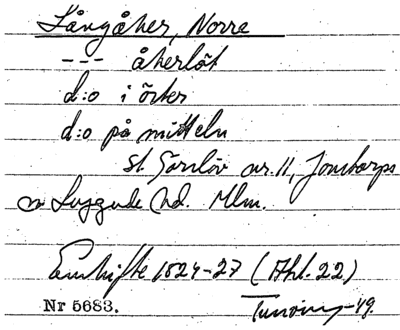 Långåker, Norre
--- åkerlöt
d:o i örter
d:o på mitteln
St. Görslöv nr. 11, Jonstorps
sn Luggude hd. Mlm.
Enskifte 1824-27 (Akt. 22)
Nr 5683. Tuneing-49.